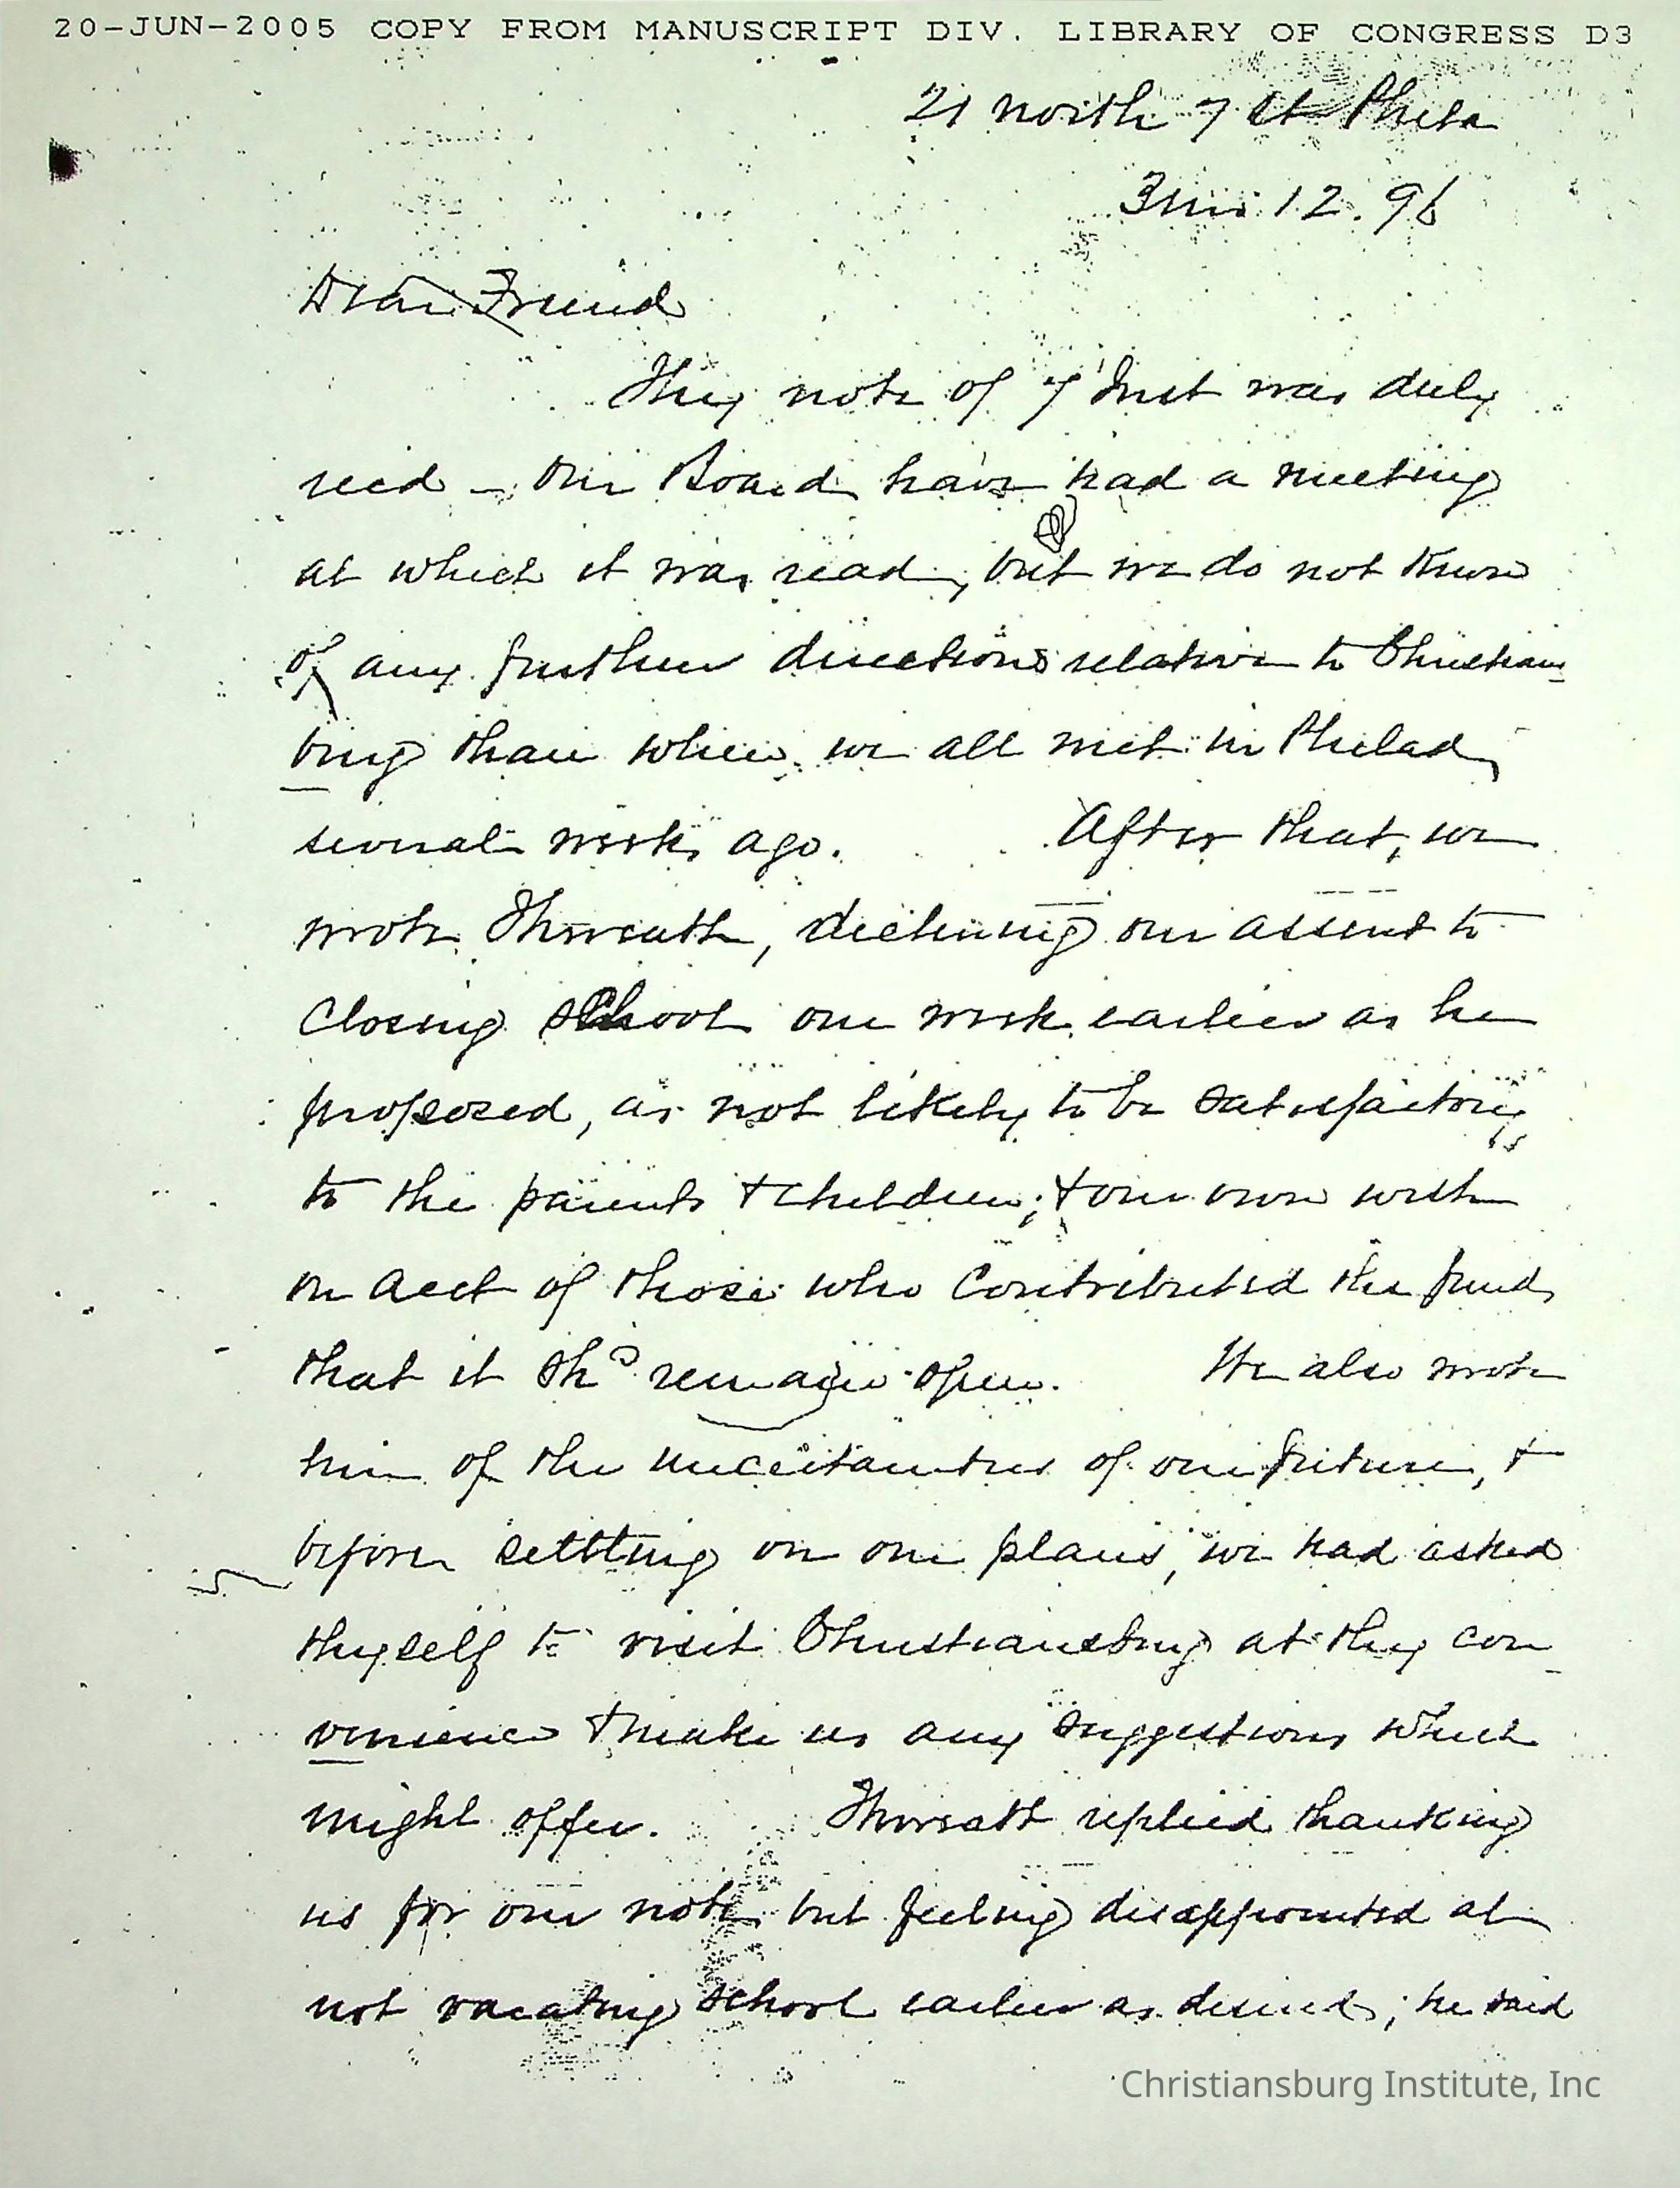 20-JUN-2005 COPY FROM MANUSCRIPT DIV. LIBRARY OF CONGRESS D3
21 North 7 St Phila
3 mo 12. 96
Dear Friend
Thy note of 7 Inst was duly
recd - Our Board have had a meeting
at which it was read, but we do not know
of any further directions relative to Christians
burg than when we all met in Philad,
several weeks ago. After that, we
wrote Thweatt, declining our assent to
closing school one week earlier as he
proposed, as not likely to be satisfactory
to the parents + children; + our own wish
on acct of those who contributed the funds
that it shd remain open. We also wrote
him of the uncertainties of our future, +
before settling on our plans, we had asked
thyself to visit Christiansburg at thy con
venience + make us any suggestions which
might offer. Thweatt replied thanking
us for our note but feeling disappointed at
not vacating school earlier as desired; he said
Christiansburg Institute, Inc